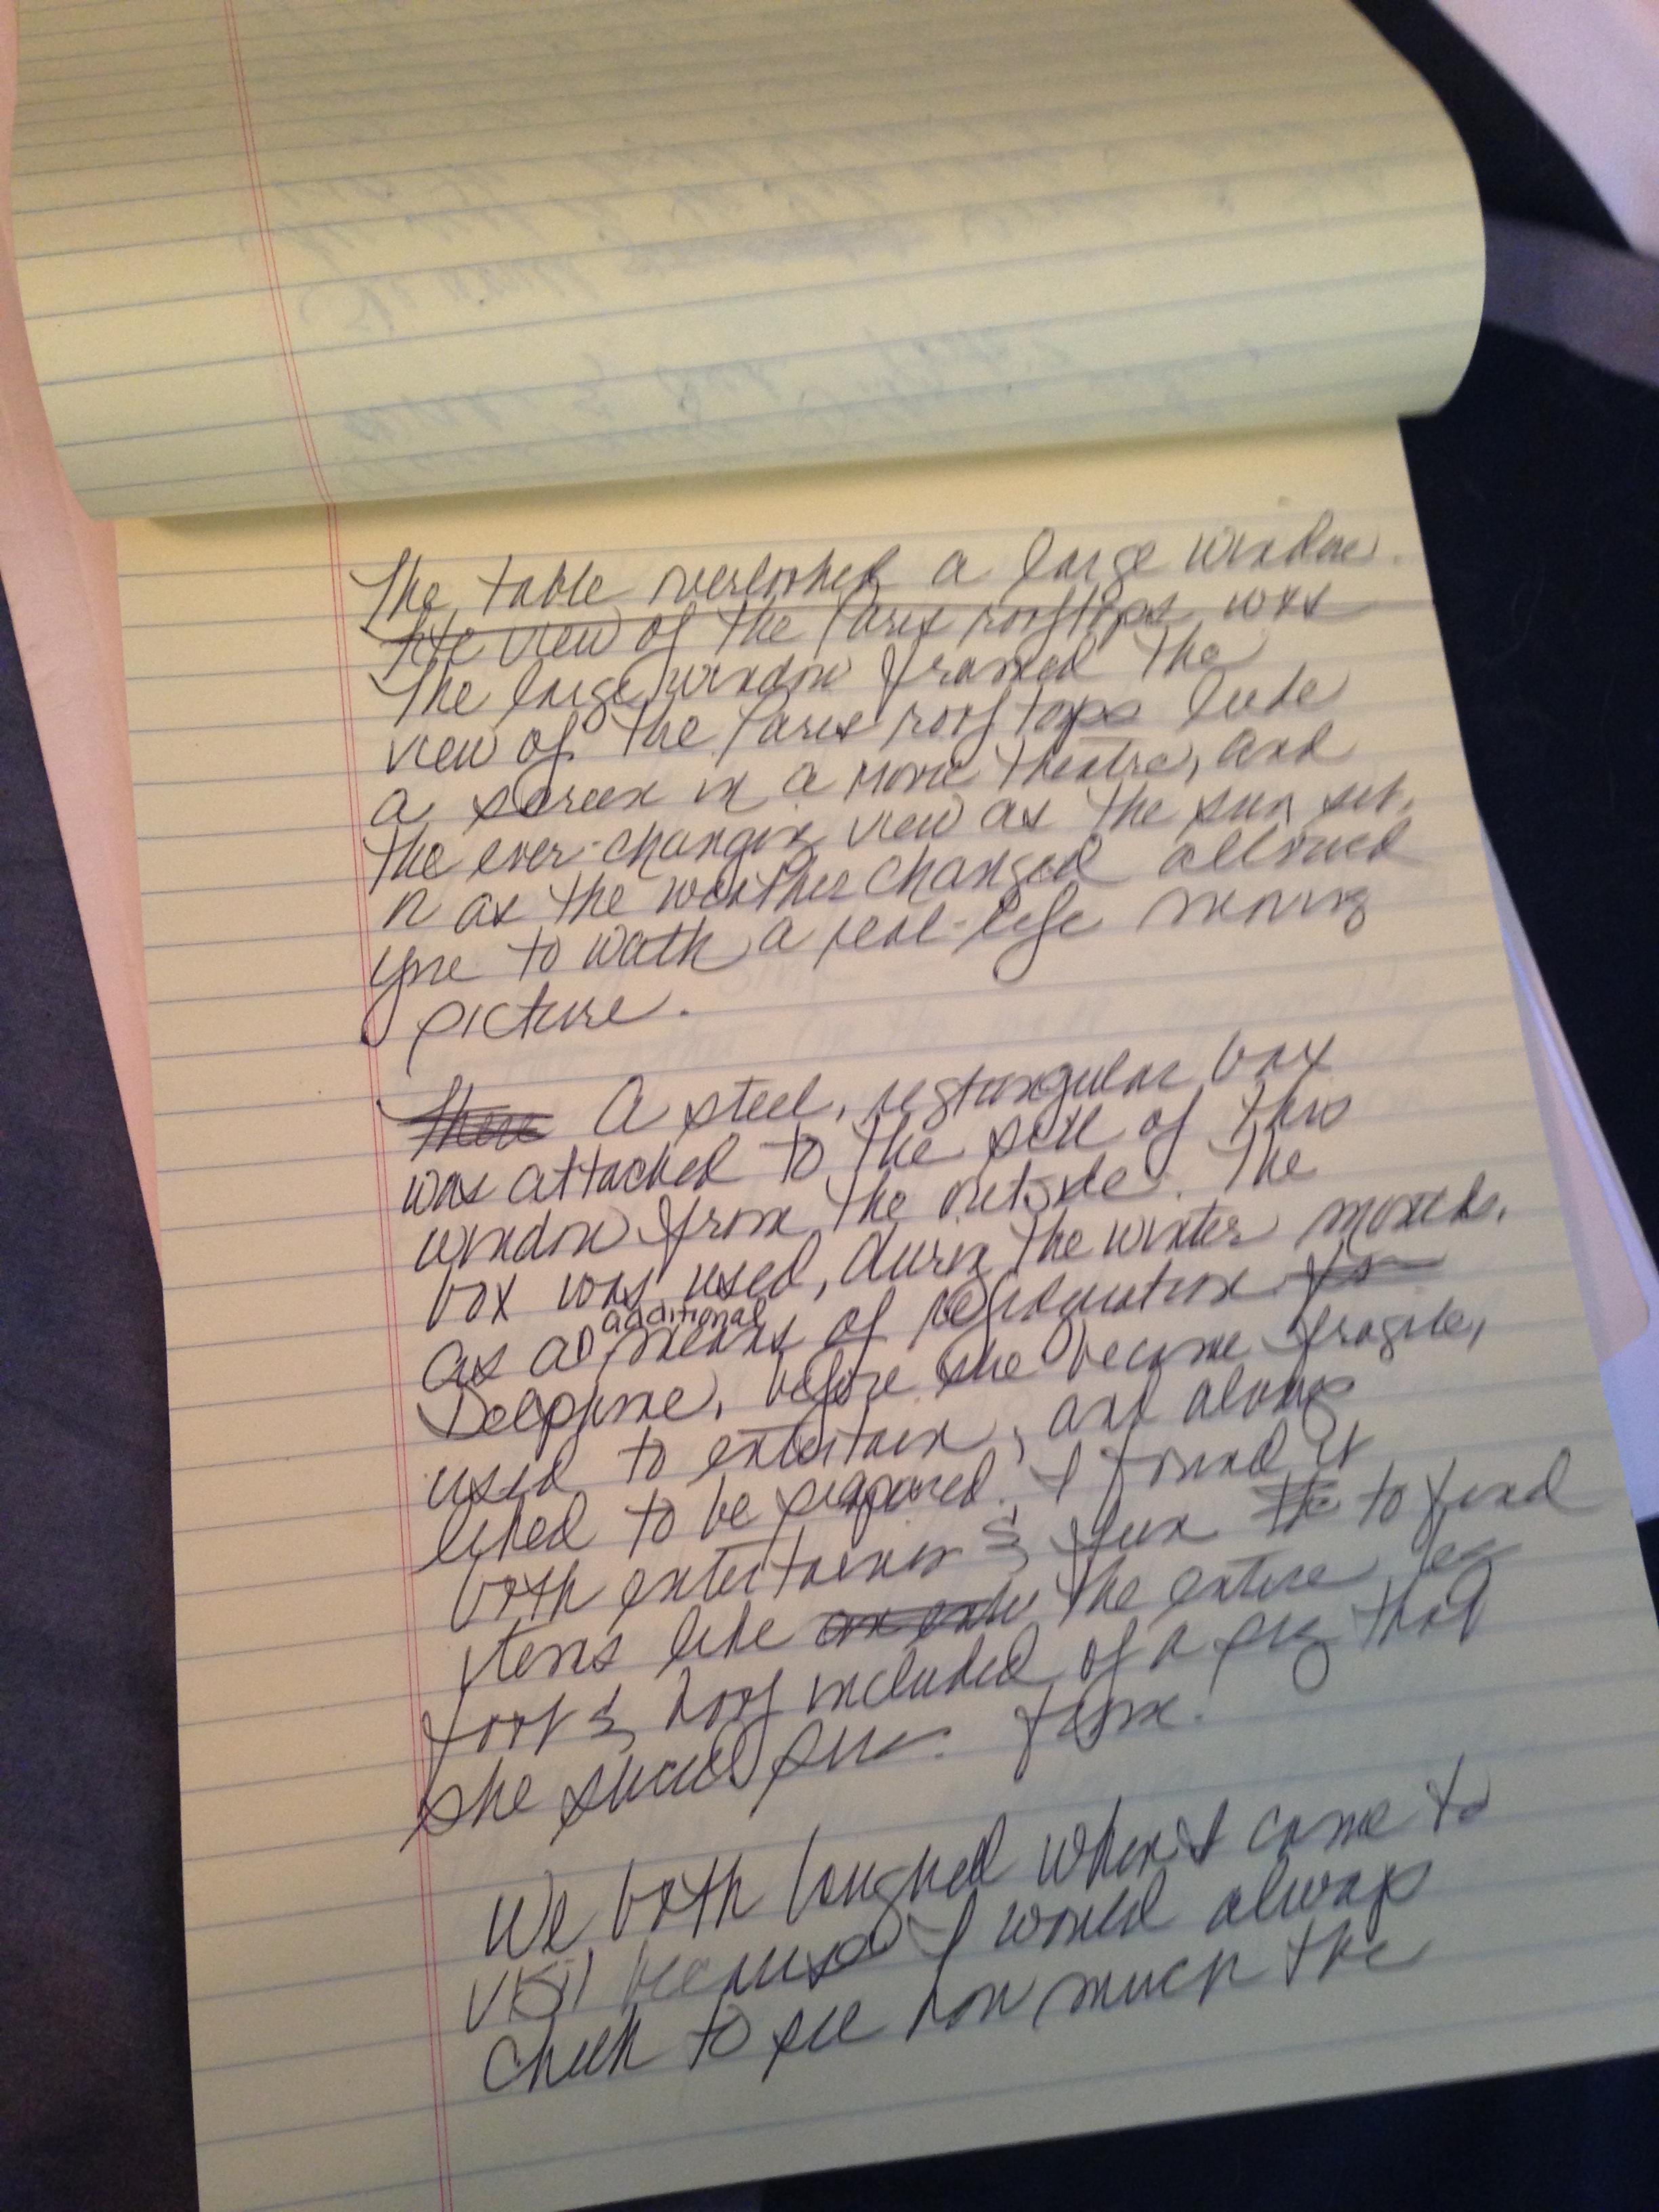 The table overlooked a large window.
The view of the Paris rooftops was
The large window framed the
view of the Paris rooftops like
a screen in a movie theatre, and
the ever-changin view as the sun set,
n as the weather changed allowed
you to wath a real-life moving
picture.
There A steel, regtangular box
was attached to the sill of this
window from the outside. The
box was used, durin the winter months,
additional
as an means of refrideration for
Delphine, before she became fragile,
used to entertain, and always
liked to be prepared. I found it
both entertainin & fun the to find
items like the entire leg
foot & hoof included of a pig that
she from.
We both laughed when I came to
visit because I would always
check to see how much the